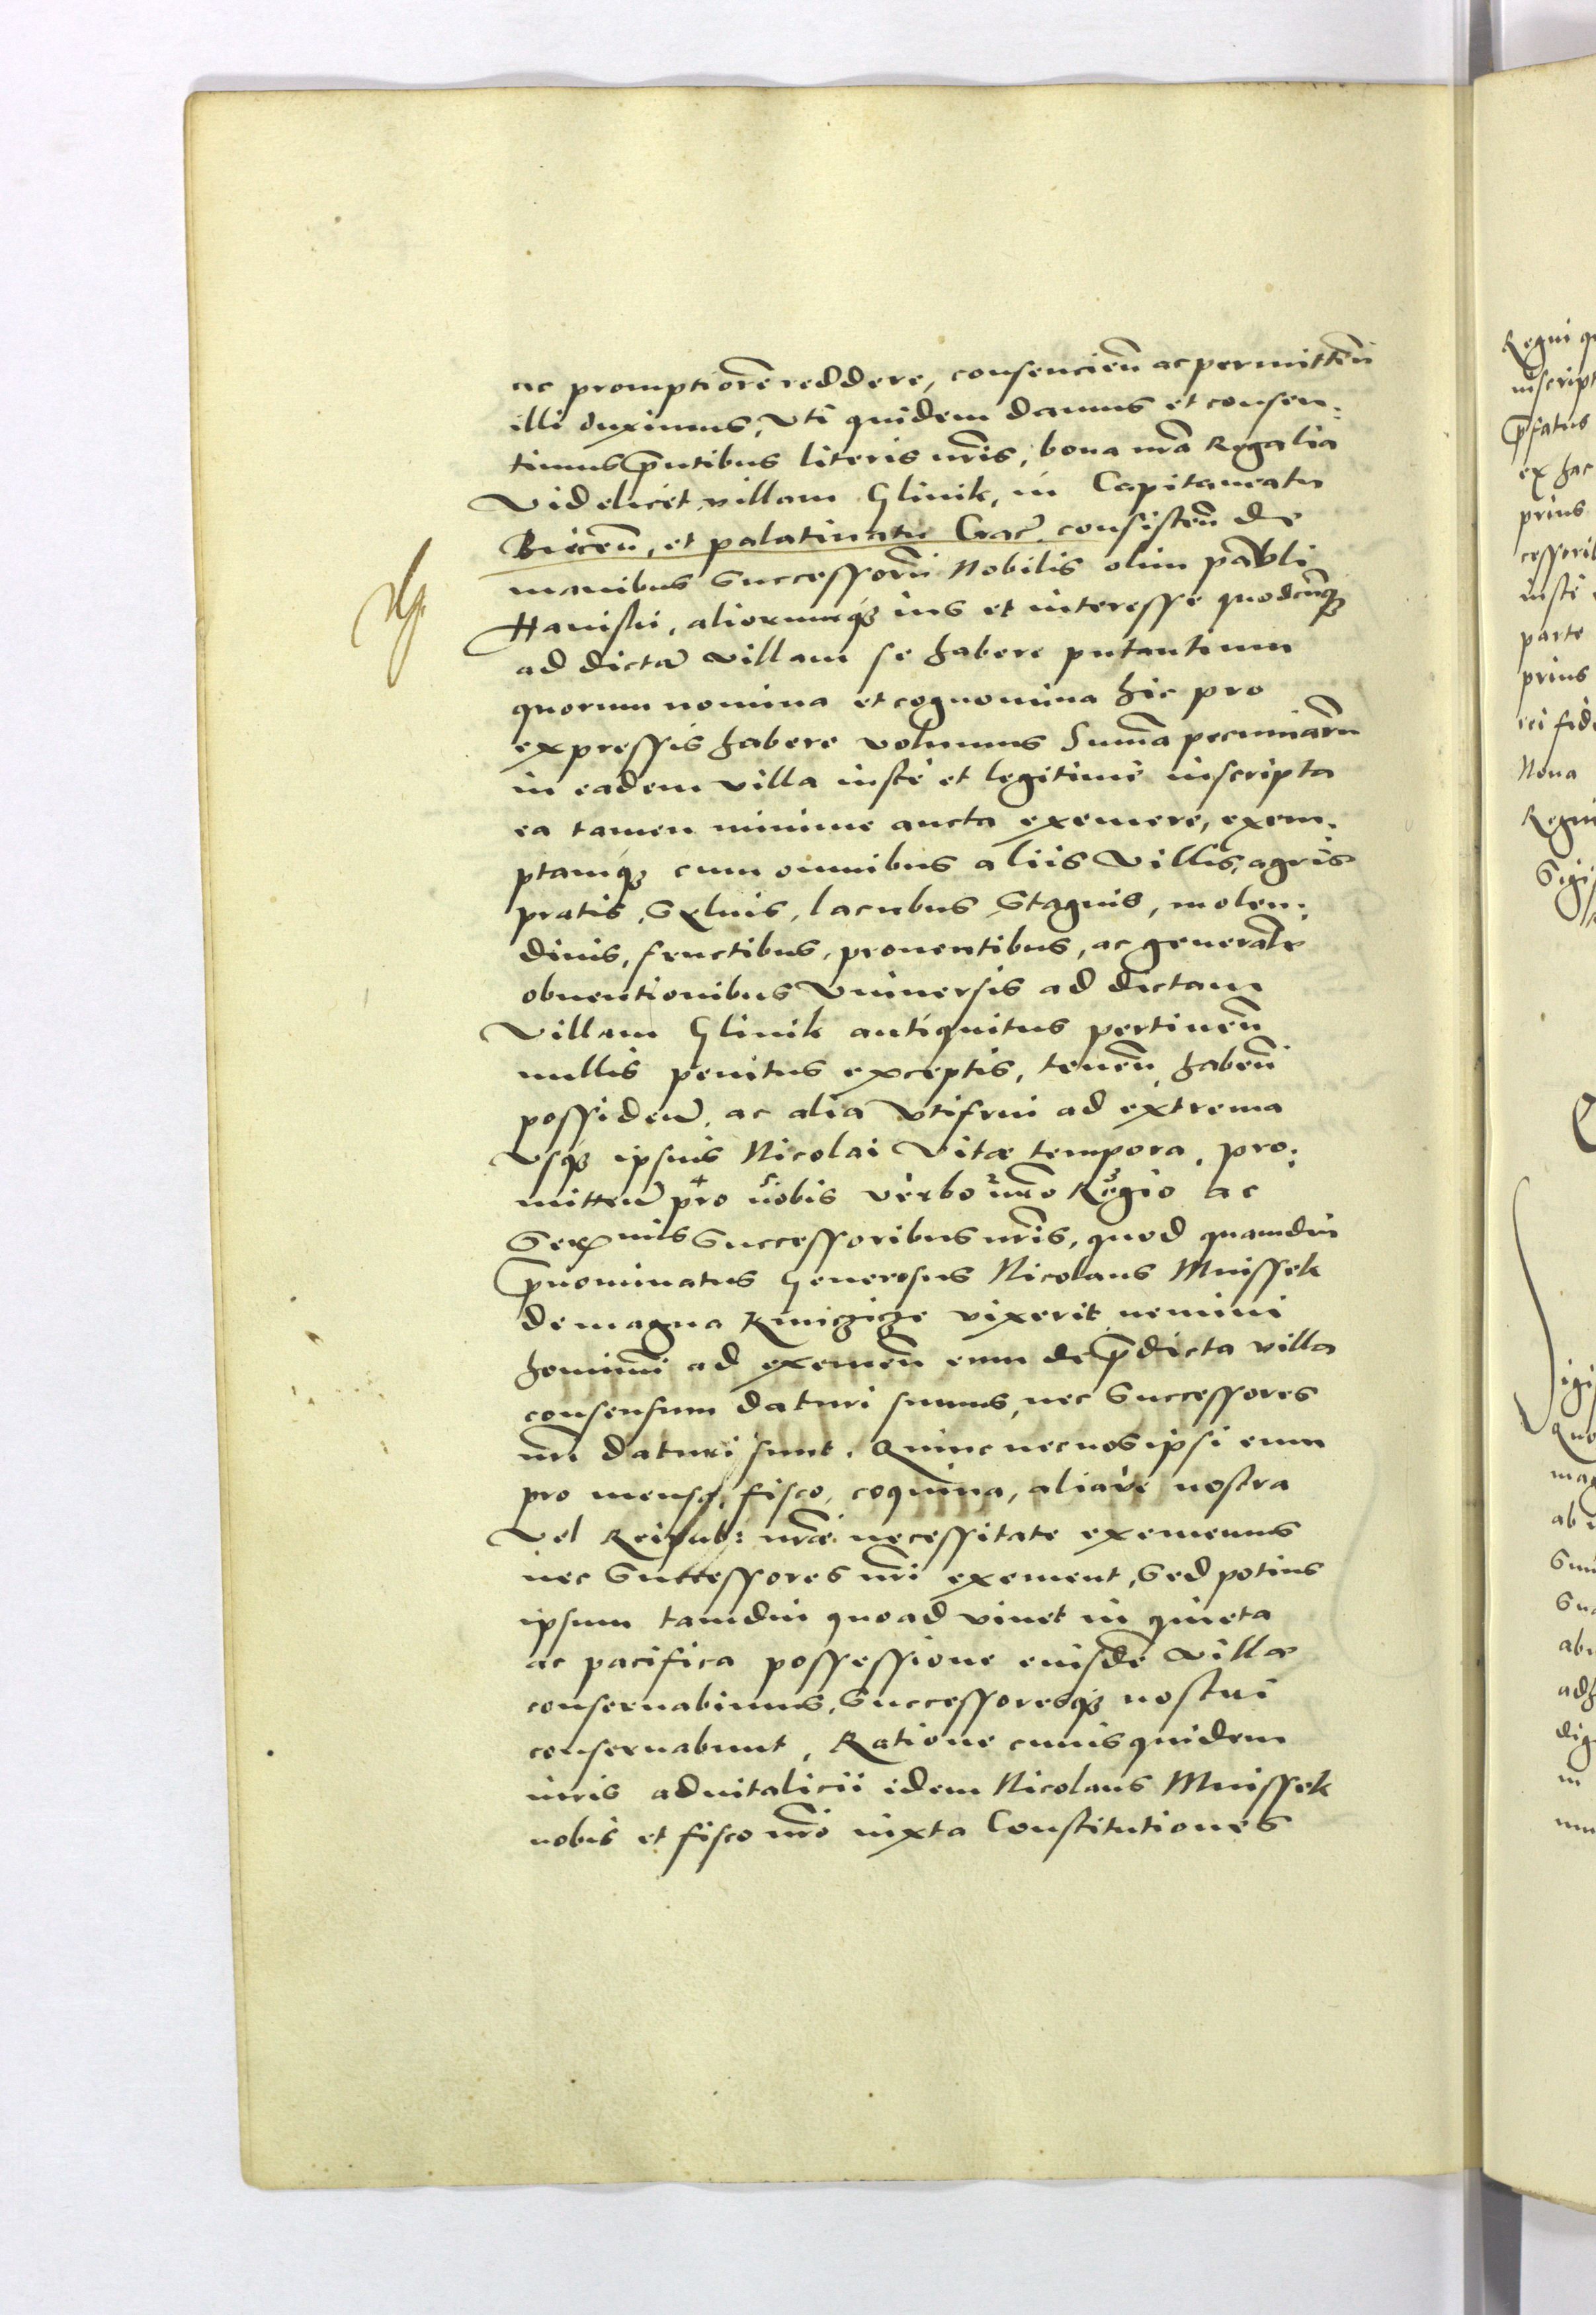 ac promptiorē reddere, consencieñ ac permitteñ
illi duximus, vti quidem damus et consen:
timus p̄ntibus literis nr̄is, bona nr̄a Regalia
Videlicet villam Glinik, in Capitaneatu
Bieceñ, et palatinatu Crac̄. consisteñ de
manibus Successorū Nobilis olim pauli
Haniski, aliorumq3 ius et interesse quodcūq3
ad dictā villam se habere putantium
quorum nomina et cognomina hic pro
expressis habere volumus Sum̄a pecuniarū
in eadem villa iuste et legitime inscripta
ea tamen minime aucta exemere, exem:
ptamq3 cum omnibus aliis villis, agris
pratis, Syluis, lacubus Stagnis, molen:
dinis, fructibus, prouentibus, ac generalr̄
obuentionibus Vniuersis ad dictam
Villam Glinik antiquitus pertineñ
nullis penitus exceptis, teneñ habeñ
possideñ, ac alia vtifrui ad extrema
Vsq3 ipsius Nicolai Vitæ tempora, pro:
mitteñ pro nobis verbo nr̄o Regio ac
Ser^mis Successoribus nr̄is, quod quamdiu
p̄nominatus Generosus Nicolaus Mnissek
de magna Kunczicze vixerit nemini
hominū ad exemeñ eum de p̄dicta villa
consensum daturi sumus, nec Successores
nr̄i daturi sunt. Quinc nec nos ipsi eum
pro mensa, fisco, coquina, aliave nostra
Vel Reipub: nr̄æ necessitate exememus
nec Successores nr̄i exement, Sed potius
ipsum tamdiu quoad viuet in quieta
ac pacifica possessione eiusdē villæ
conseruabimus, Successoresq3 nostri
conseruabunt, Ratione cuius quidem
iuris aduitalicii idem Nicolaus Mnissek
nobis et fisco nr̄o iuxta Constitutiones